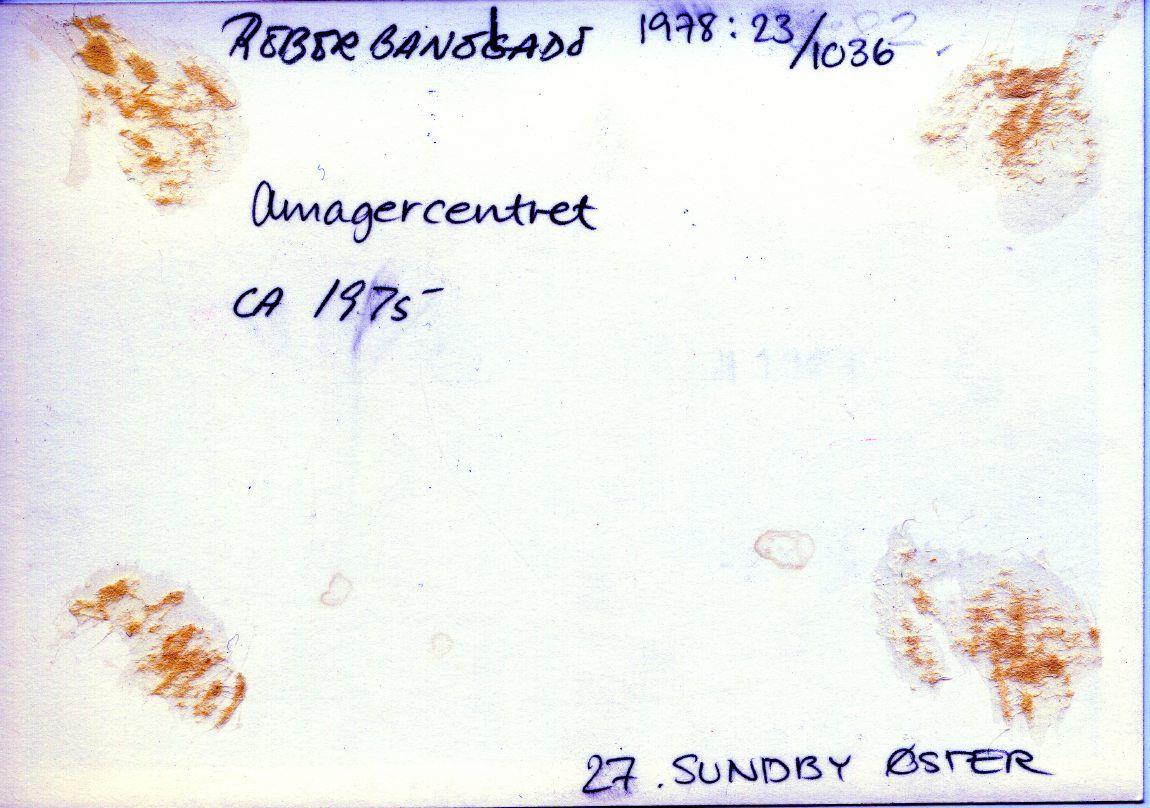 REBERBANEGADE 1978:23/1036
Amagercentret
CA 1975
27. SUNDBY ØSTER